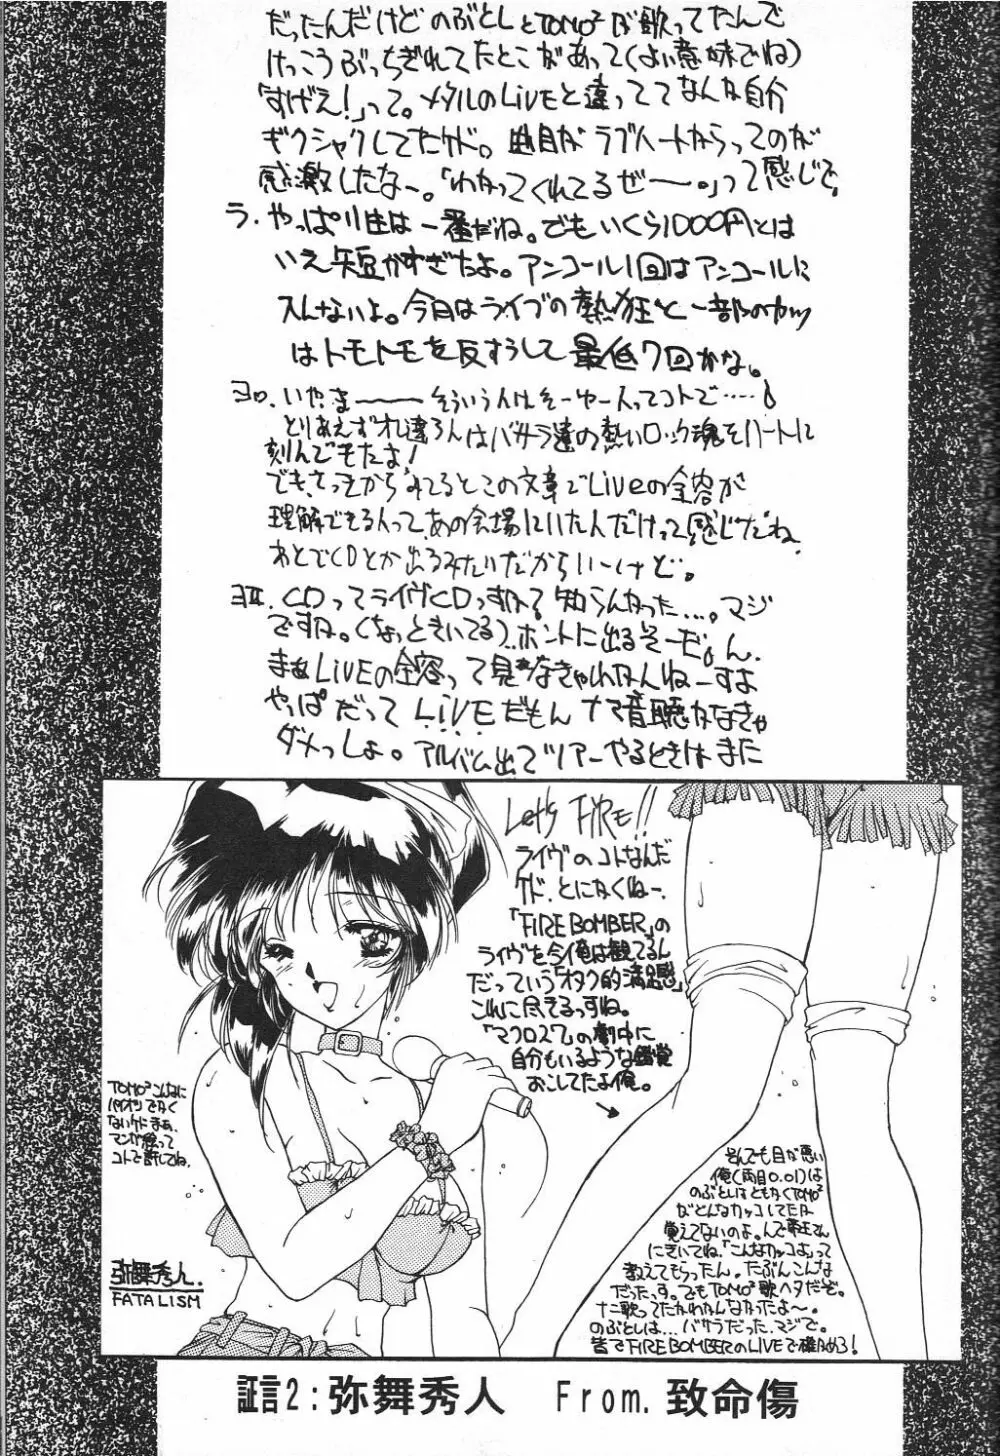 だったんだけどのぶとしとTOMO²が歌ってたんで
けっこうぶっちぎれてたとこがあって(よい意味でね)
「すげえ!」って。メタルのLiVEと違っててなんか自分
ギクシャクしてたケド。曲目がラブハートからってのが
感激したなー。「わかってくれてるぜ——。」って感じで。
ラ.やっぱり生は一番だね。でもいくら1000円とは
いえ短かすぎたよ。アンコール1回はアンコールに
入んないよ。今日はライブの熱狂と一部のカツ
はトモトモを反すうして最低7回かな。
ヨロ.いやまーーーそういう人はそーゆー人ってコトで……
とりあえずオレ達3人はバサラ達の熱いロック魂をハートに
刻んでもたよ!
でも、さっきからみてるとこの文章でLiveの全容が
理解できる人って、あの会場にいた人だけって感じだね
あとでCDとか出るみたいだからいーけど。
ヨエ.CDってライヴCDっすね?知らんかった…。マジ
ですね。(ちょっときいてる)ホントに出るそーだよん.
まぁLiVEの全容って見なきゃわかんねーすよ
やっぱだってLiVEだもんナマ音聴かなきゃ
ダメっしょ。アルバム出てツアーやるときはまた
Let's FIRE!!
ライヴのコトなんだ
ケド、とにかくねー、
「FIRE BOMBER」の
ライヴを今俺は観てるん
だっていう「オタク的満足感」
これに尽きるっすね。
「マクロス7」の劇中に
自分もいるような錯覚
おこしてたよ俺。
TOMO²こんなに
パイオツでかく
ないケドまぁ、
マンガ
コトで許してね.
弥舞秀人.
FATALISM
そんでも目が悪い
俺(両目0.01)は
のぶとしはともかくTOMO²
がどんなカッコしてたか
覚えてないのよ。んで
にきいてね、「こんなカッコよ」って
教えてもらったん。たぶんこんな
だったっす。でもTOMO²歌ヘタだぞ。
ナニ歌ってたかわかんなかったよ〜。
のぶとしは…バサラだった、マジで。
皆でFIRE BOMBERのLIVEで確かめろ!
証言2:弥舞秀人　From.致命傷